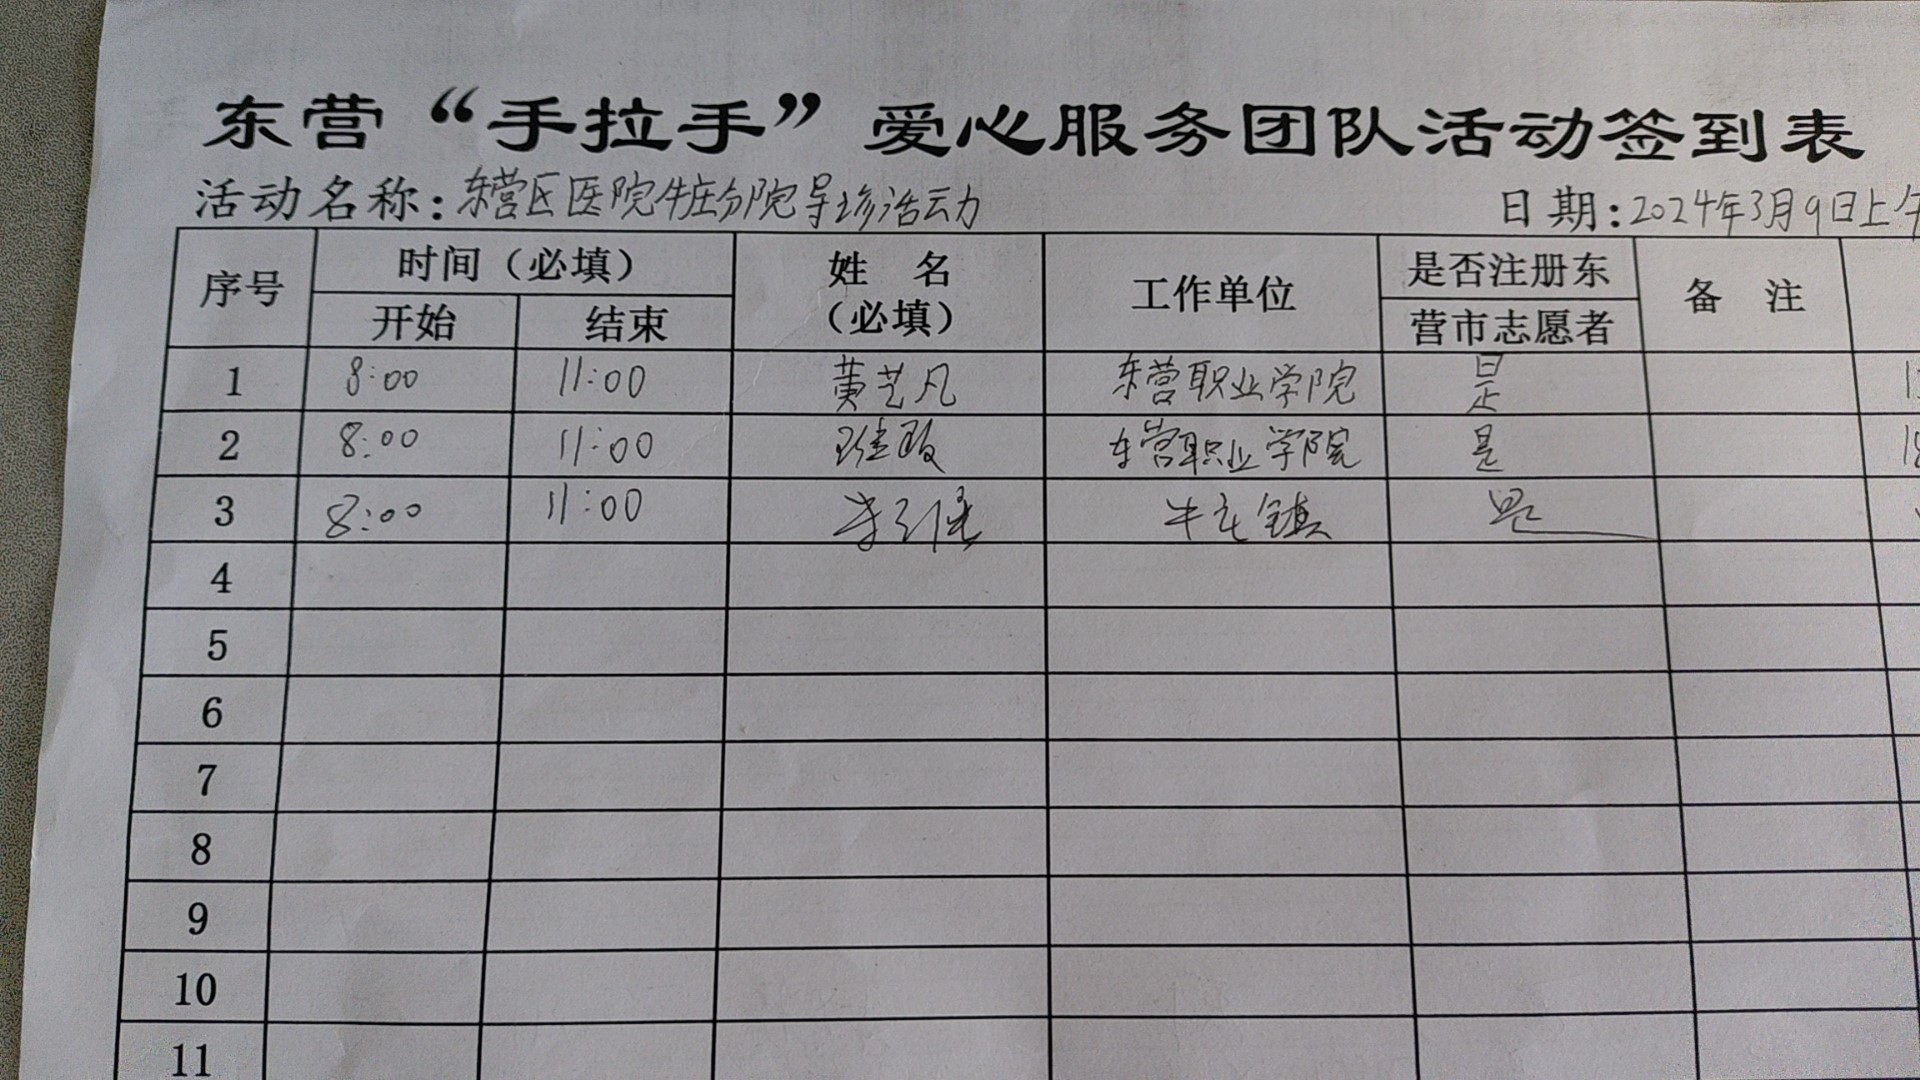 东营“手拉手”爱心服务团队活动签到表
活动名称：东营区医院牛庄分院导诊活动 日期：2024年3月9日上午
序号 时间（必填） 姓 名（必填） 工作单位 是否注册东营市志愿者 备 注
开始 结束
1 8:00 11:00 黄艺凡 东营职业学院 是
2 8:00 11:00 东营职业学院 是
3 8:00 11:00 李 牛庄镇 是
4
5
6
7
8
9
10
11